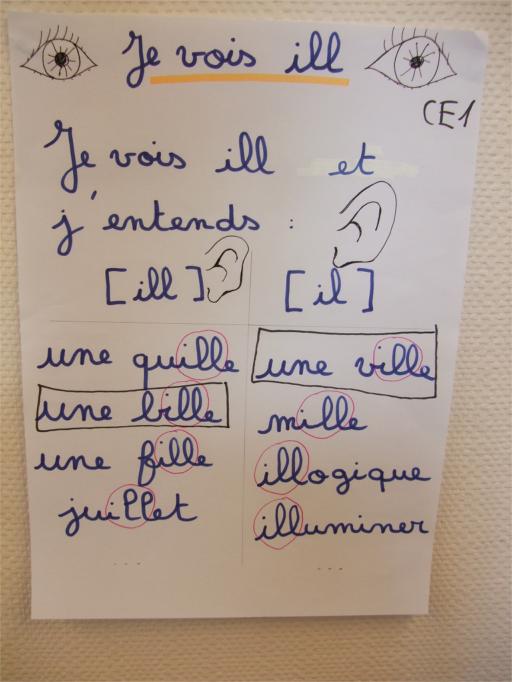 Je vois ill
CE1
Je vois ill et
j'entends :
[ill] [il]
une quille
une bille
une fille
juillet
...
une ville
mille
illogique
illuminer
...